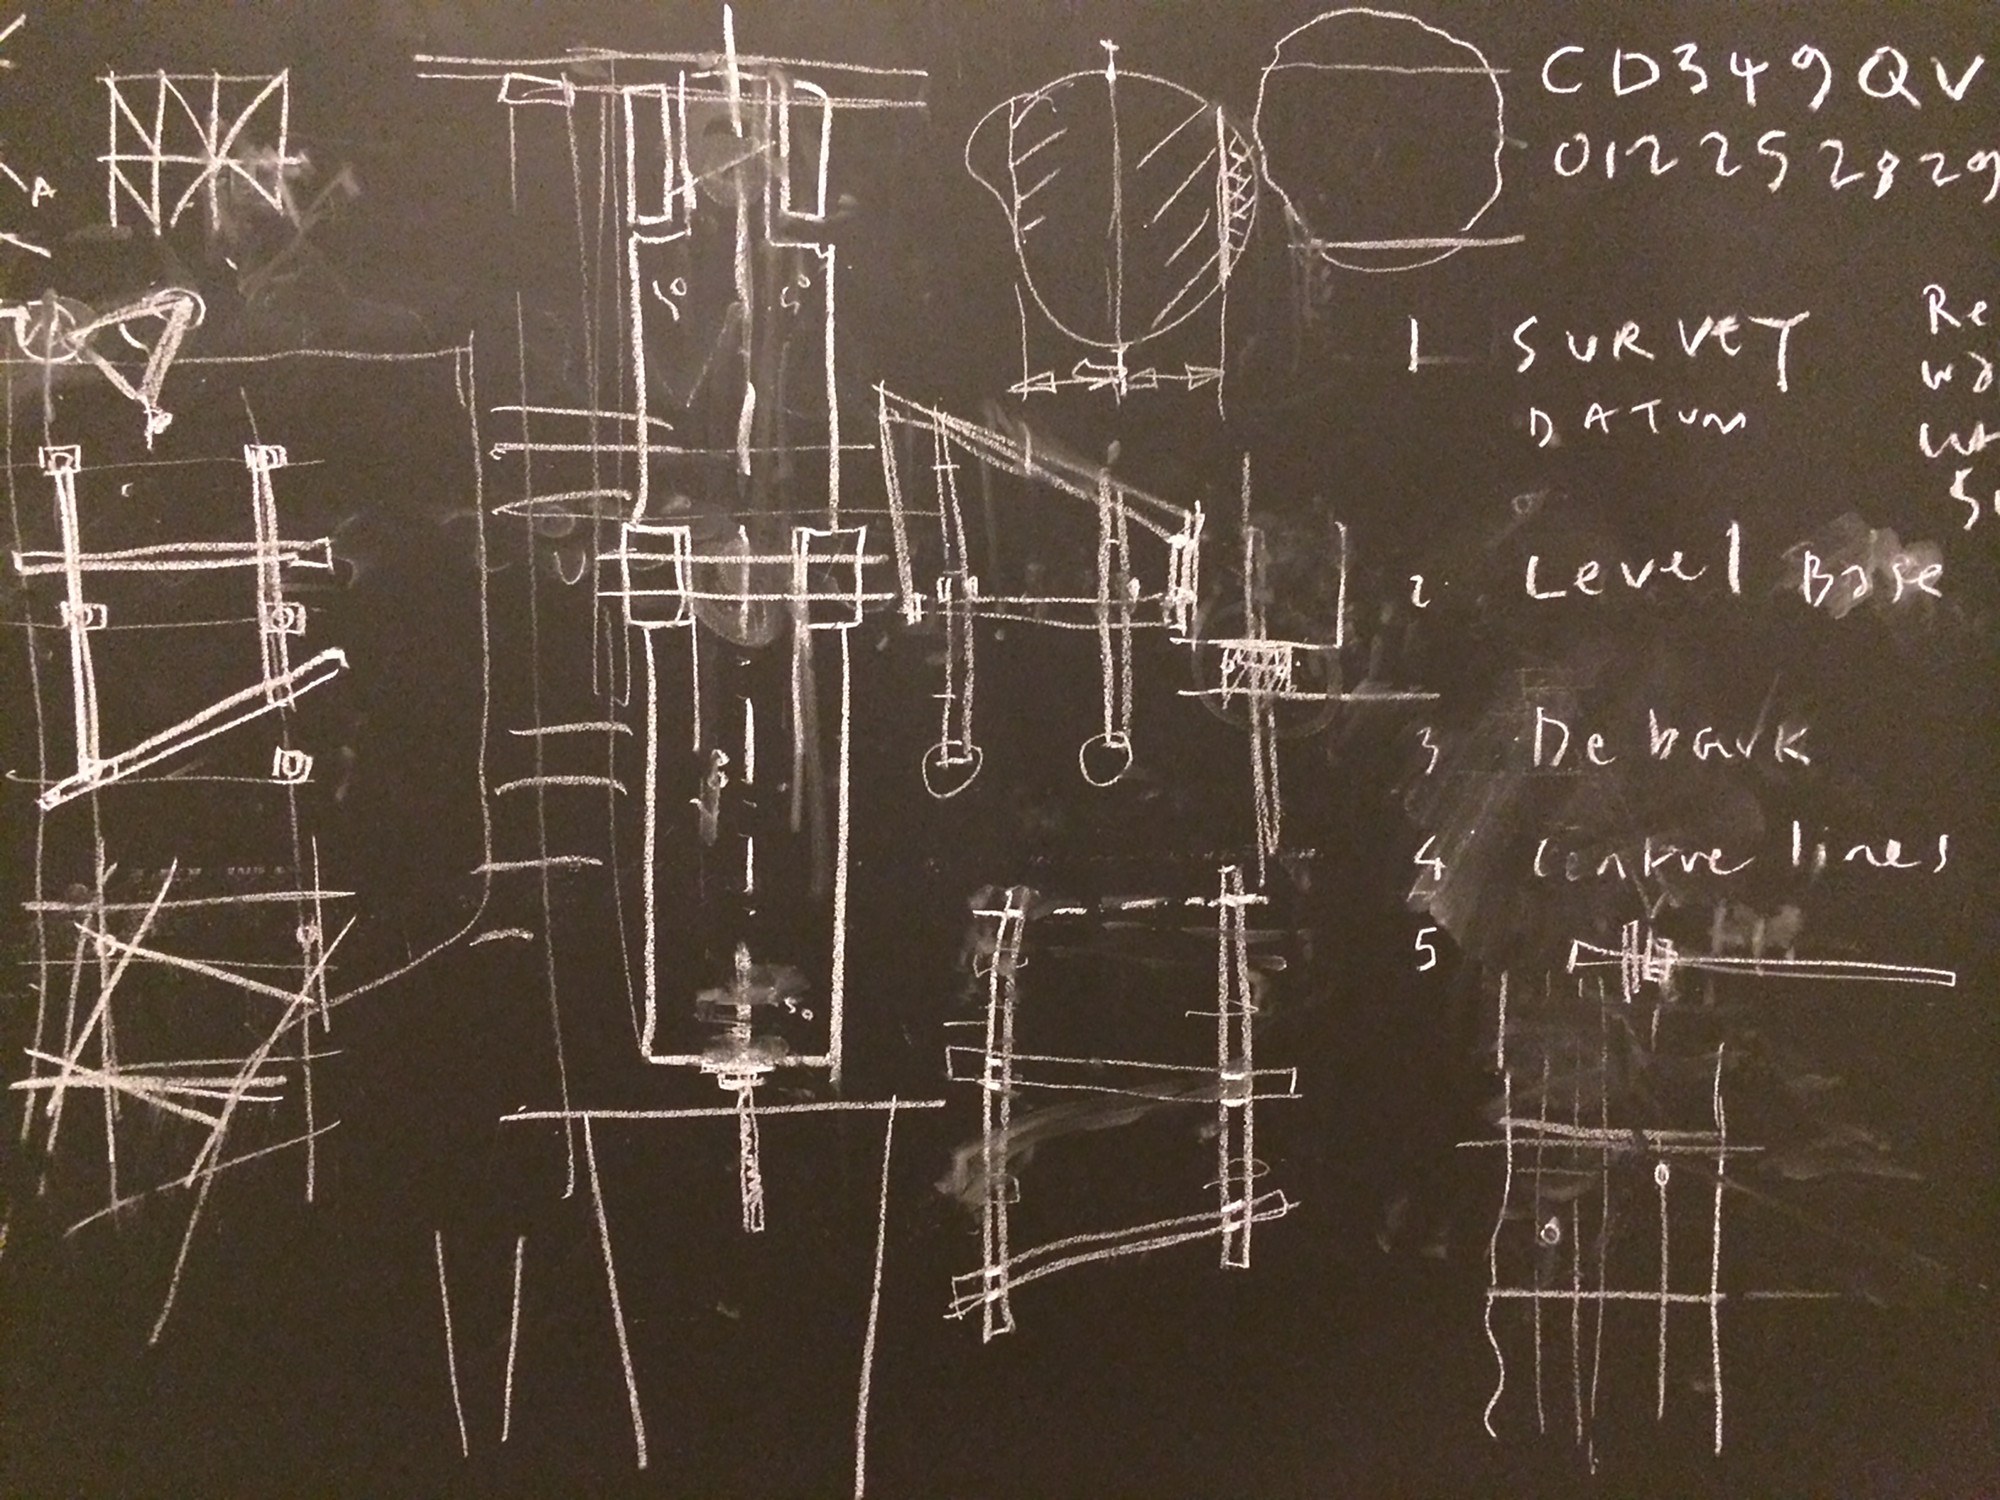 CD349QV
012252829
1 SURVEY
DATUM
Re
2 Level Base
3 De bark
4 Centre lines
5
A
50 50
50